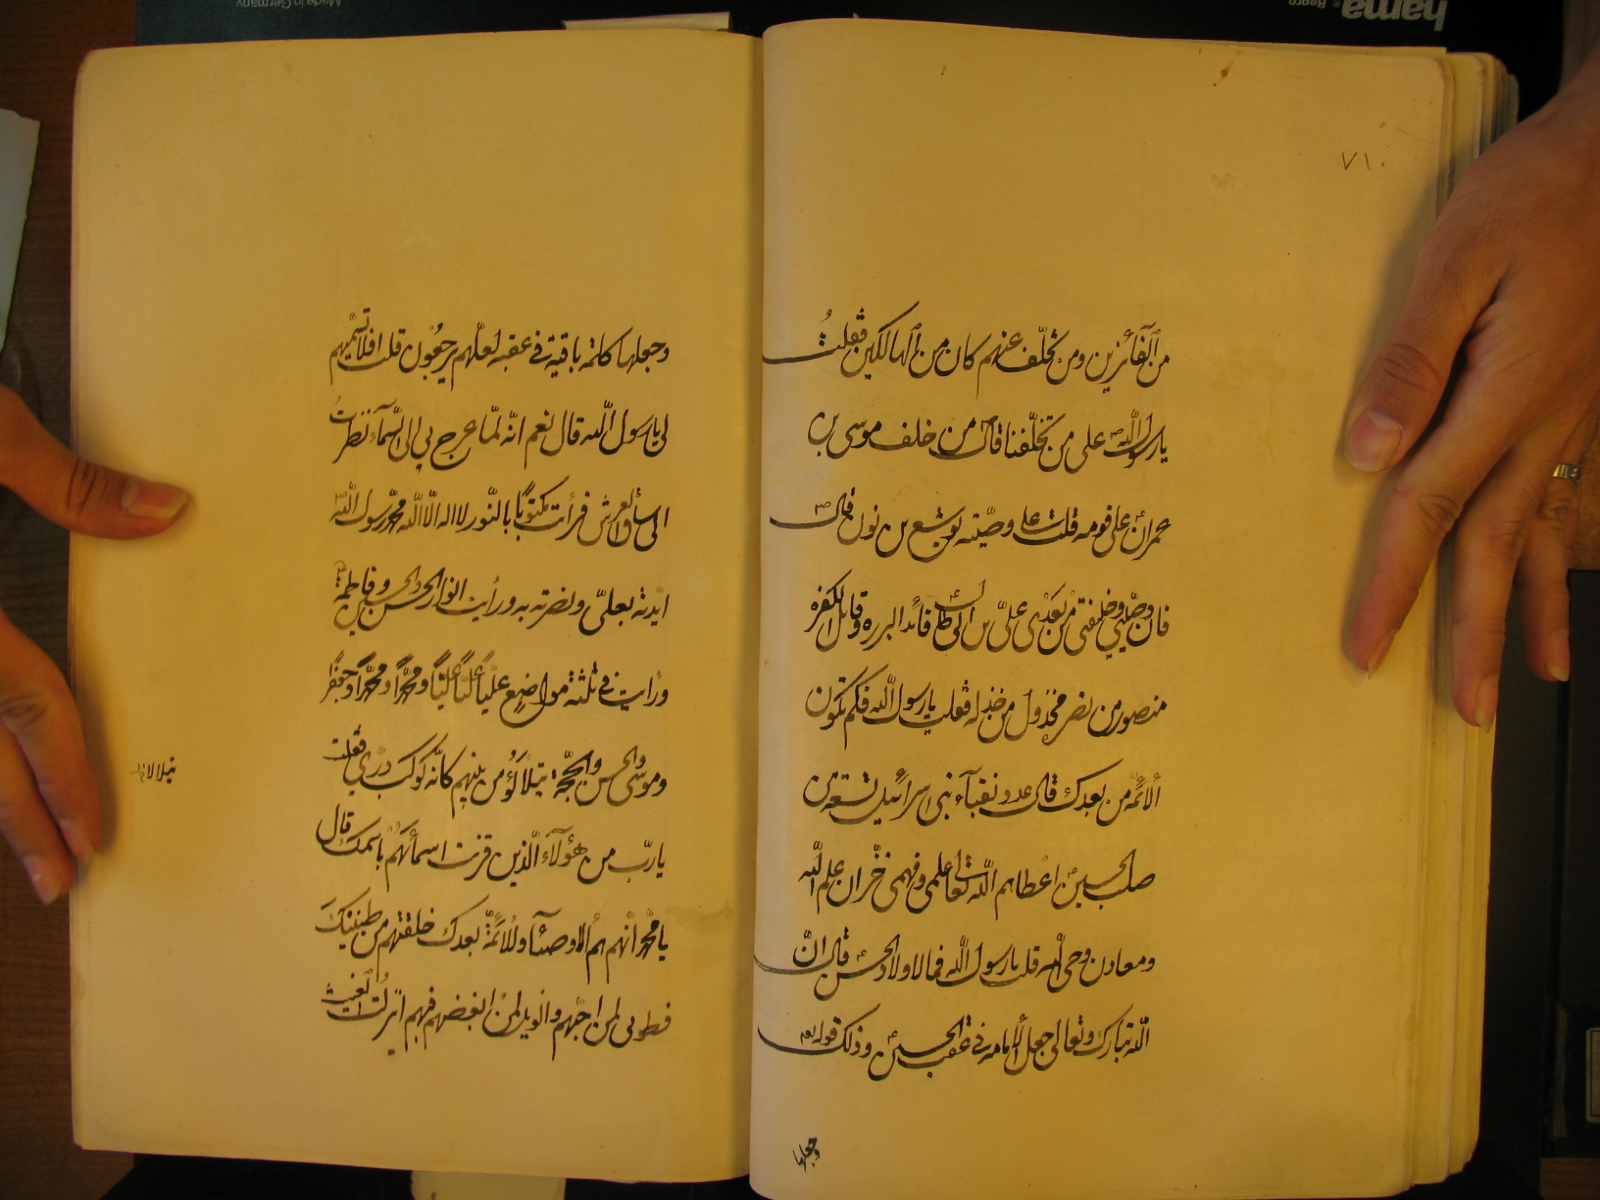 ٧١٠
من الفائزين ومن تخلّف عنهم كان من الهالكين فقلتُ
يا رسول الله ص على من تخلّفنا قال من خلف موسى بن
عمران على قومه قلت على وصيّته يوشع بن نون قال ص
فان وصيّي وخليفتي من بَعْدِى عليّ بن ابى طالب ع قائد البرره وقاتل الكفره
منصور من نصره مخذول من خذله فقلت يا رسول الله فكم تكون
الأئمّة من بعدك قال عدد نقبآء بنى اسرائيل تسعة من
صلب الحسين ع اعطاهم الله تعالى علمى وفهمى خزّان علم الله
ومعادن وحى الله قلت يا رسول الله فما لاولاد الحسن ع قال انّ
الله تبارك وتعالى جعل الامامة فى عقب الحسين ع وذلك قوله تعالى
وجعلها
وجعلها كلمة باقية فى عقبه لعلّهم يرجعون قلت افلا تسمّيهم
لى يا رسول الله قال نعم انّه لمّا عرج بى الى السّمآء نظرتُ
الى ساق العرش فرأت مكتوبًا بالنّور لا اله الا الله محمّد رسول الله
ايّدته بعلىّ ونصرته به ورأيت انوار الحسن والحسين وفاطمة
ورأيت فى ثلثة مواضع عليًّا عليًّا عليًّا ومحمّدًا ومحمّدًا وجعفرًا
وموسى والحسن والحجّة يتلألؤ من بينهم كانّه كوكب درّي فقلت
يا ربّ من هؤلآء الّذين قرنت اسمآئهم باسمك قال
يا محمّد انهم هم الاوصيآء والأئمّة بعدك خلقتهم من طينتك
فطوبى لمن احبّهم والويل لمن ابغضهم فبهم انزلت الغيث